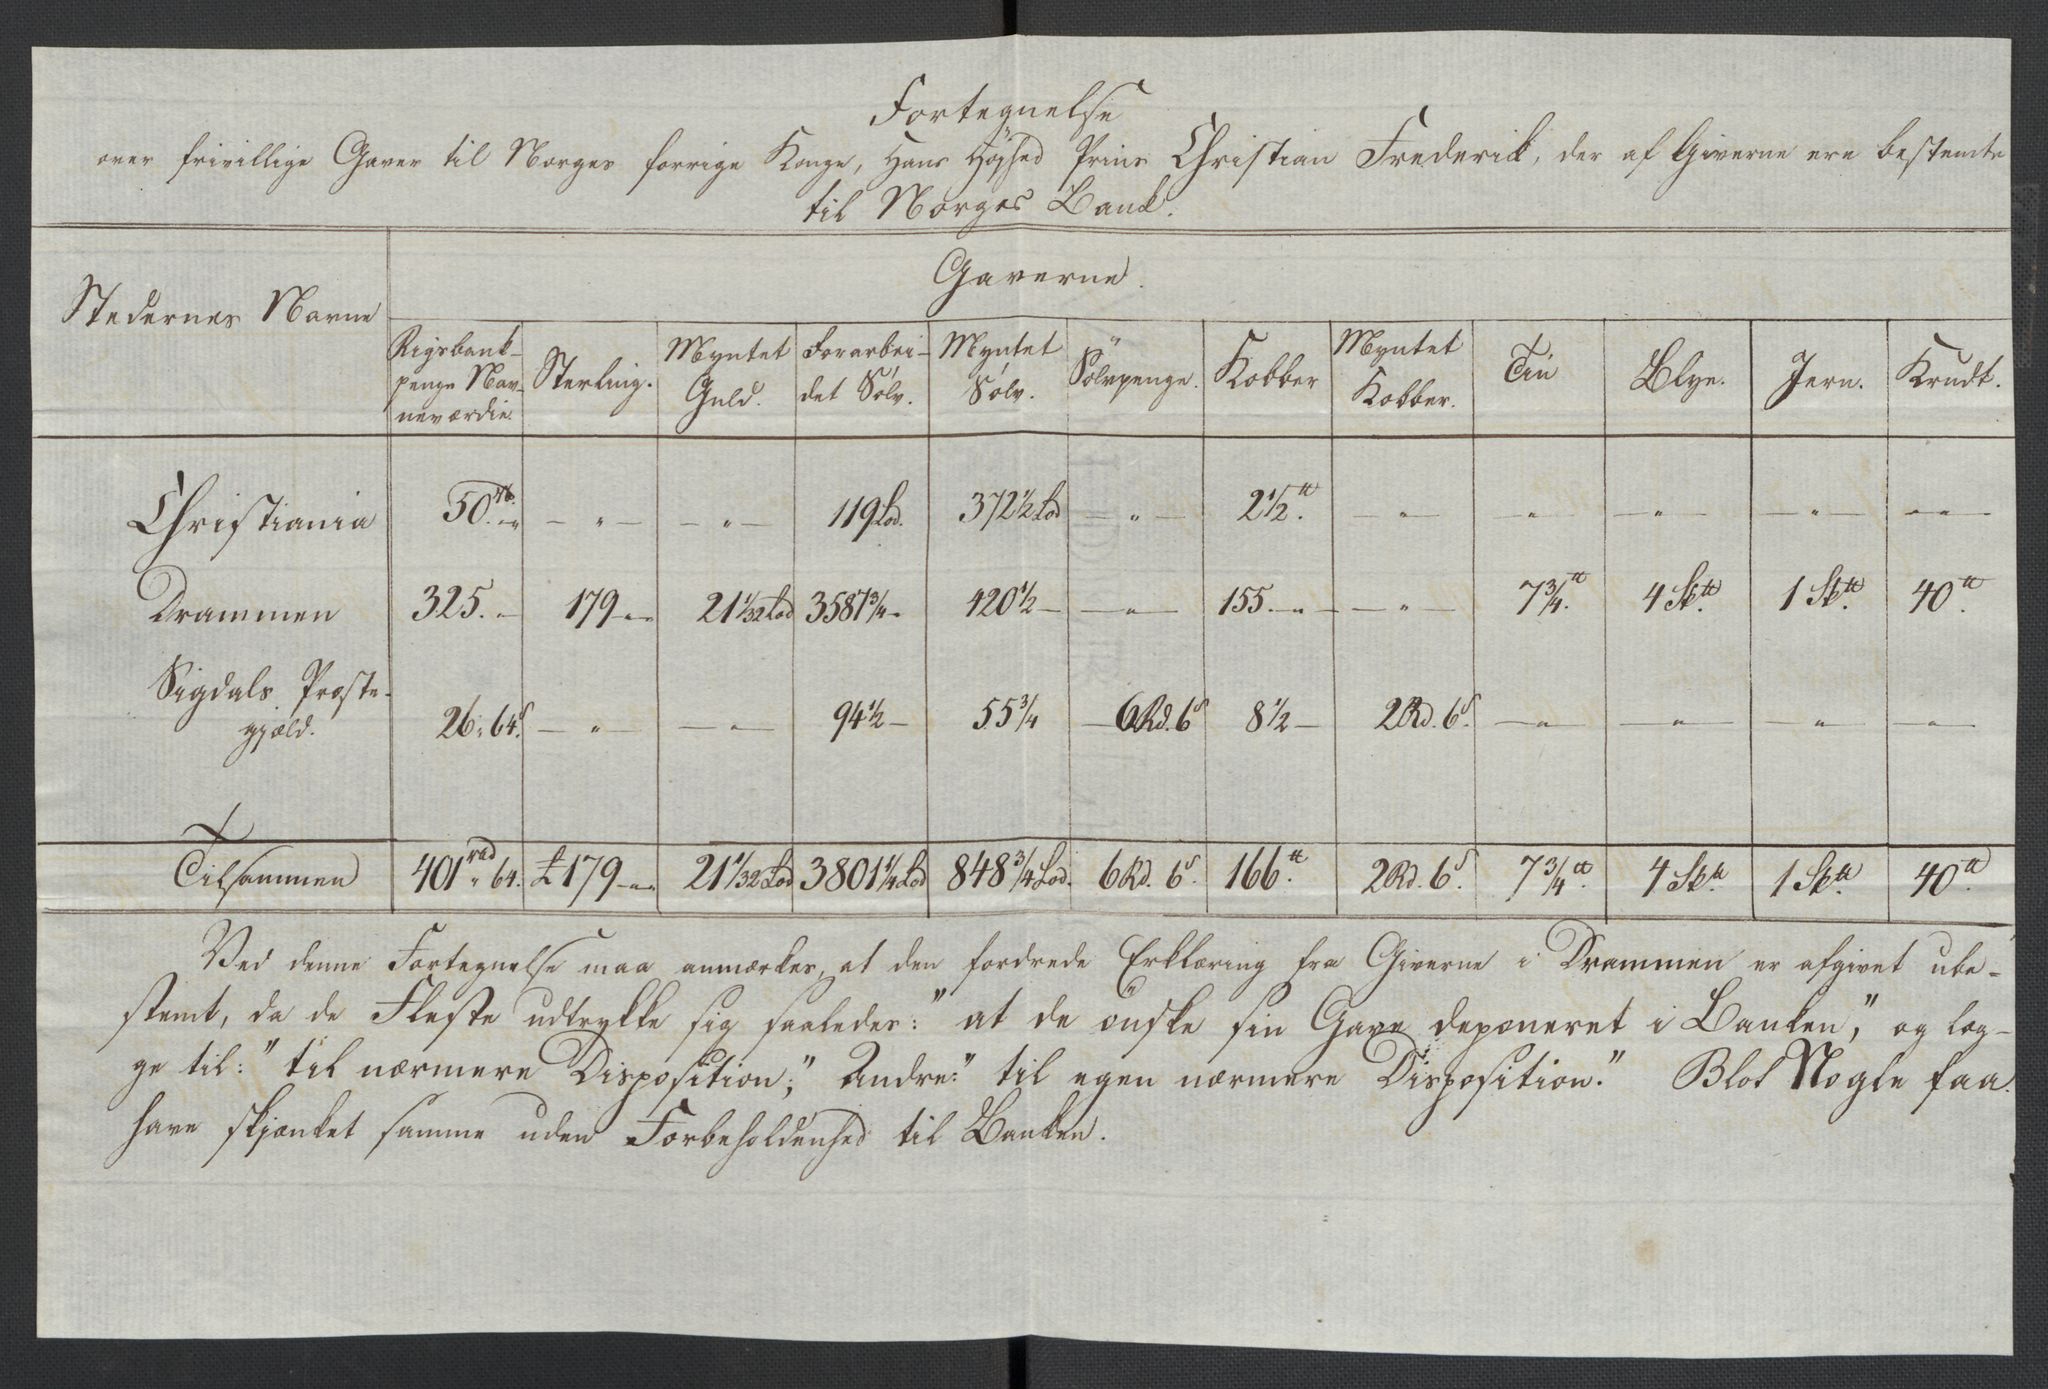 Fortegnelse
over frivillige Gaver til Norges forrige Konge, Hans Höjhed Prins Christian Frederik, der af Giverne ere bestemte
til Norges Bank.
Gaverne.
Stedernes Navne
Rigsbank-
penge Nav-
neværdie.
Sterling.
Myntet
Guld.
Forarbei-
det Sølv.
Myntet
Sølv.
Sölvpenge.
Kobber
Myntet
Kobber.
Tin
Blye.
Jern.
Krudt.
Christiania 50 rb. „ — „ — — „ — 119 Lod. 372 1/2 Lod — „ — 2 1/2 ℔. — „ — — „ — — „ — — „ — — „ —
Drammen 325. — 179 — „ — 21 1/32 Lod 3587 3/4 — 420 1/2 — — „ — 155. — „ — — „ — 7 3/4 ℔. 4 Sk℔. 1 Sk℔. 40 ℔.
Sigdals Præste-
gjæld. 26 „ 64 s — „ — — „ — 94 1/2 — 55 3/4 — 6 Rd. 6 s 8 1/2 — 2 Rd. 6 s. — „ — — „ — — „ — — „ —
Tilsammen 401 rbd „ 64. £ 179 — „ — 21 1/32 Lod 3801 1/4 Lod 848 3/4 Lod. 6 Rd. 6 s. 166 ℔. 2 Rd. 6 s. 7 3/4 ℔. 4 Sk℔. 1 Sk℔. 40 ℔.
Ved denne Fortegnelse maa anmærkes, at den fordrede Erklæring fra Giverne i Drammen er afgivet ube-
stemt, da de Fleste udtrykke sig saaledes: "at de önske sin Gave deponeret i Banken," og læg-
ge til: "til nærmere Disposition;" Andre: "til egen nærmere Disposition." Blot Nogle faa
have skjænket samme uden Forbeholdenhed til Banken.